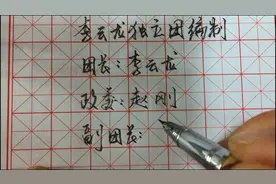 李云龙独立团编制
团长：李云龙
政委：赵刚
副团长：